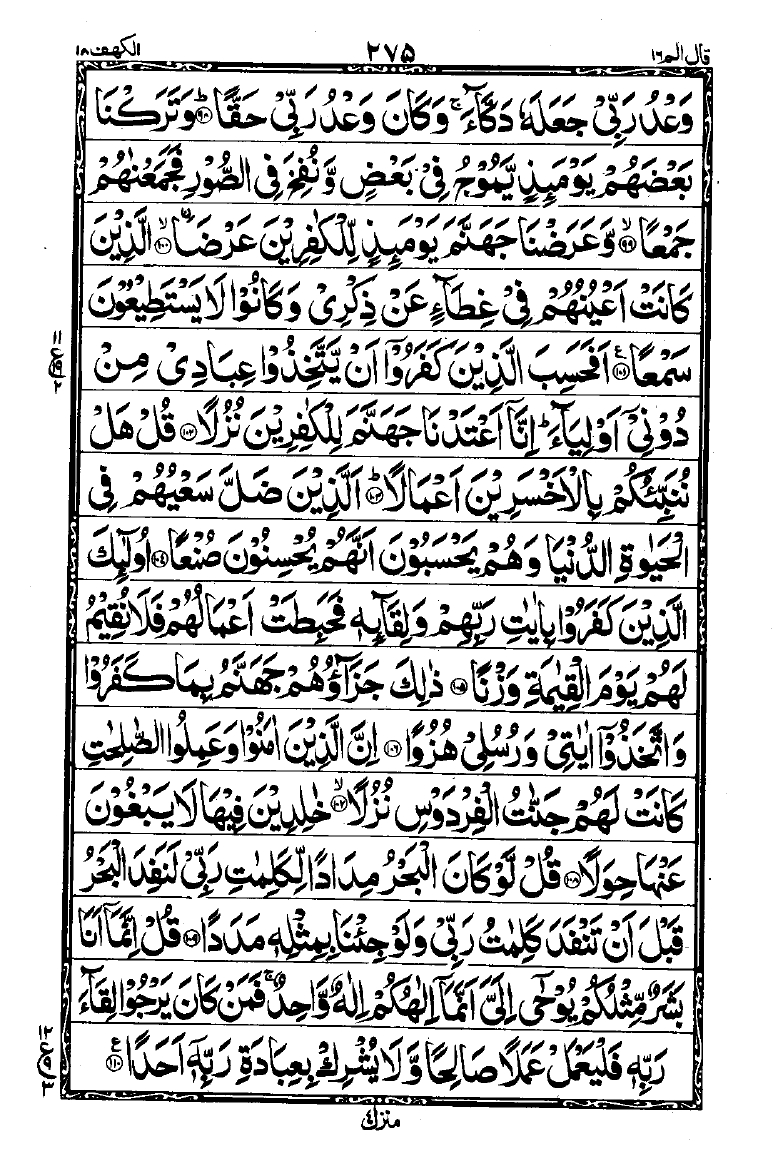 قال الم ١٦ ٢٧٥ الكهف ١٨
وَعْدُ رَبِّیْ جَعَلَهٗ دَكَّآءَ ۚ وَكَانَ وَعْدُ رَبِّیْ حَقًّا ؕ ﴿۹۸﴾ وَتَرَكْنَا
بَعْضَهُمْ يَوْمَىِٕذٍ يَّمُوْجُ فِیْ بَعْضٍ وَّنُفِخَ فِی الصُّوْرِ فَجَمَعْنٰهُمْ
جَمْعًا ۙ﴿۹۹﴾ وَّعَرَضْنَا جَهَنَّمَ يَوْمَىِٕذٍ لِّلْكٰفِرِيْنَ عَرْضَا ۙ﴿۱۰۰﴾ ۨالَّذِيْنَ
كَانَتْ اَعْيُنُهُمْ فِیْ غِطَآءٍ عَنْ ذِكْرِیْ وَكَانُوْا لَا يَسْتَطِيْعُوْنَ
سَمْعًا ﴿۱۰۱﴾ ع اَفَحَسِبَ الَّذِيْنَ كَفَرُوْۤا اَنْ يَّتَّخِذُوْا عِبَادِیْ مِنْ
١١ ع ٢
دُوْنِیْۤ اَوْلِيَآءَ ؕ اِنَّاۤ اَعْتَدْنَا جَهَنَّمَ لِلْكٰفِرِيْنَ نُزُلًا ﴿۱۰۲﴾ قُلْ هَلْ
نُنَبِّئُكُمْ بِالْاَخْسَرِيْنَ اَعْمَالًا ؕ﴿۱۰۳﴾ اَلَّذِيْنَ ضَلَّ سَعْيُهُمْ فِی
الْحَيٰوةِ الدُّنْيَا وَهُمْ يَحْسَبُوْنَ اَنَّهُمْ يُحْسِنُوْنَ صُنْعًا ﴿۱۰۴﴾ اُولٰٓىِٕكَ
الَّذِيْنَ كَفَرُوْا بِاٰيٰتِ رَبِّهِمْ وَلِقَآىِٕهٖ فَحَبِطَتْ اَعْمَالُهُمْ فَلَا نُقِيْمُ
لَهُمْ يَوْمَ الْقِيٰمَةِ وَزْنًا ﴿۱۰۵﴾ ذٰلِكَ جَزَآؤُهُمْ جَهَنَّمُ بِمَا كَفَرُوْا
وَاتَّخَذُوْۤا اٰيٰتِیْ وَرُسُلِیْ هُزُوًا ﴿۱۰۶﴾ اِنَّ الَّذِيْنَ اٰمَنُوْا وَعَمِلُوا الصّٰلِحٰتِ
كَانَتْ لَهُمْ جَنّٰتُ الْفِرْدَوْسِ نُزُلًا ۙ﴿۱۰۷﴾ خٰلِدِيْنَ فِيْهَا لَا يَبْغُوْنَ
عَنْهَا حِوَلًا ﴿۱۰۸﴾ قُلْ لَّوْ كَانَ الْبَحْرُ مِدَادًا لِّكَلِمٰتِ رَبِّیْ لَنَفِدَ الْبَحْرُ
قَبْلَ اَنْ تَنْفَدَ كَلِمٰتُ رَبِّیْ وَلَوْ جِئْنَا بِمِثْلِهٖ مَدَدًا ﴿۱۰۹﴾ قُلْ اِنَّمَاۤ اَنَا
بَشَرٌ مِّثْلُكُمْ يُوْحٰۤی اِلَیَّ اَنَّمَاۤ اِلٰهُكُمْ اِلٰهٌ وَّاحِدٌ ۚ فَمَنْ كَانَ يَرْجُوْا لِقَآءَ
رَبِّهٖ فَلْيَعْمَلْ عَمَلًا صَالِحًا وَّلَا يُشْرِكْ بِعِبَادَةِ رَبِّهٖۤ اَحَدًا ﴿۱۱۰﴾ ع
١٢ ع ٩ ٣
منزل